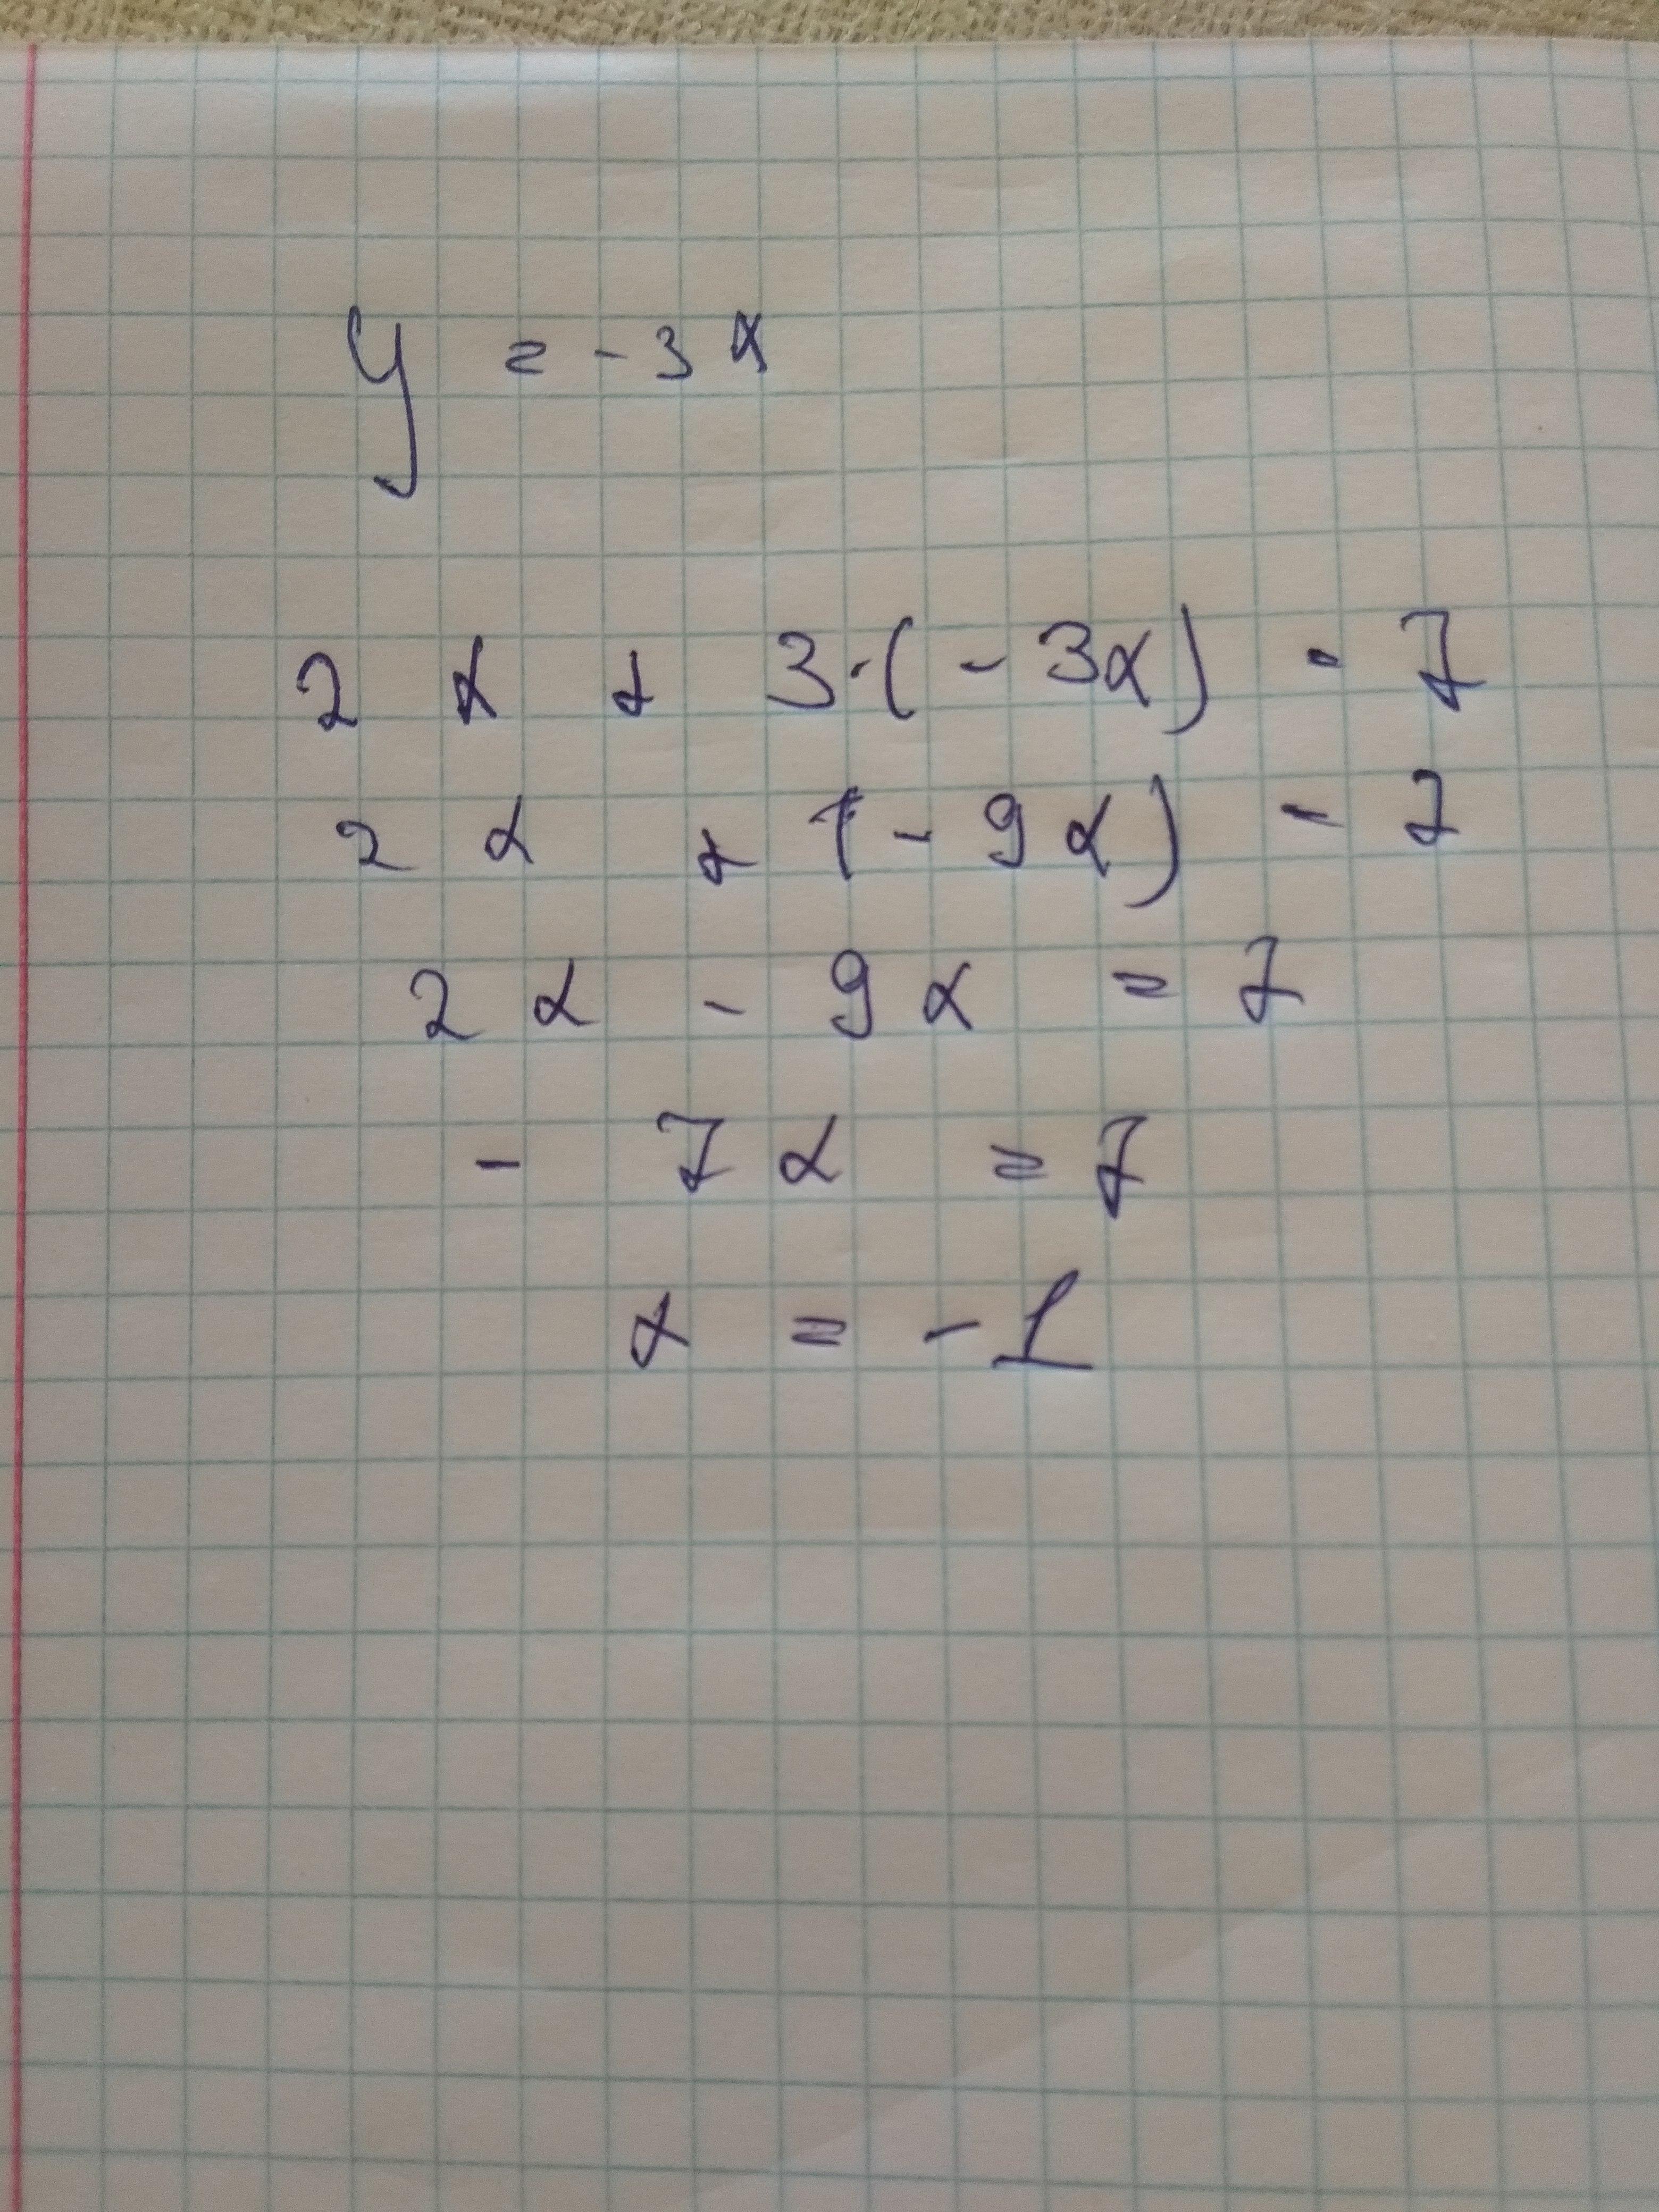 y = -3x
2x + 3·(-3x) - 7
2x + (-9x) - 7
2x - 9x = 7
- 7x = 7
x = -1